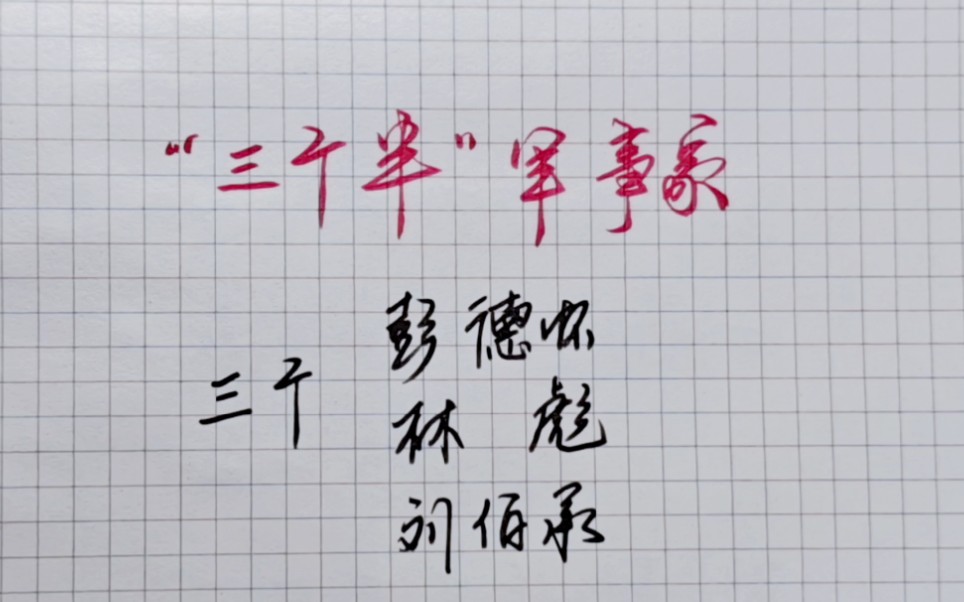 “三个半”军事家
彭德怀
三个 林 彪
刘伯承